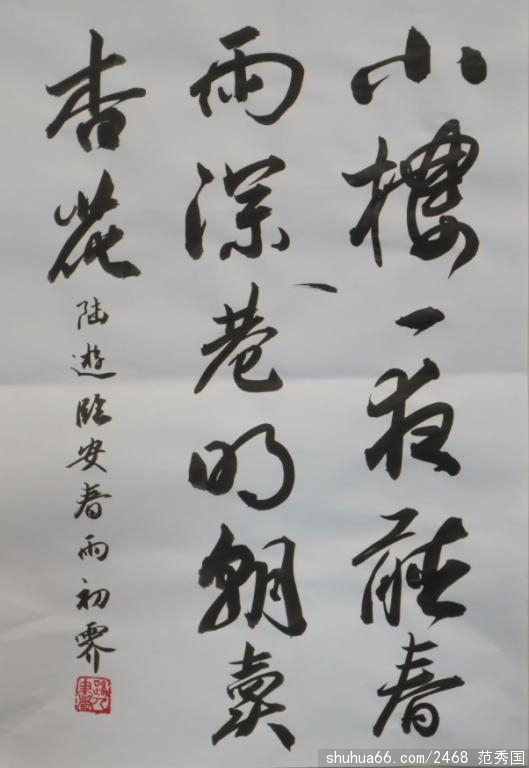 小樓一夜聽春
雨深巷明朝賣
杏花
陸遊臨安春雨初霁
shuhua66.com/2468 范秀国